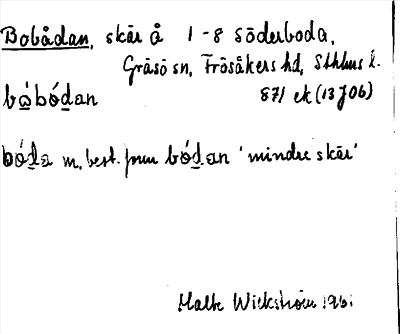 Bobådan, skär å 1-8 Söderboda,
Gräsö sn, Frösåkers hd, Sthlms l.
bὰbǿd̲an 871 ek (13J0b)
bǿd̲a m, best. form bǿd̲an 'mindre skär'
Malte Wickström 1961